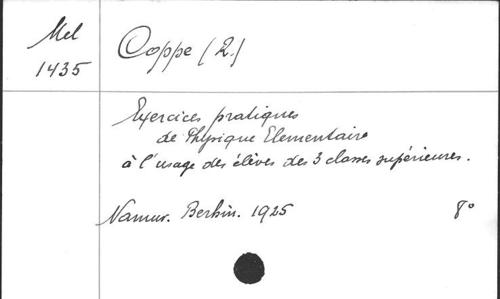 Mel
1435
Coppe (2.)
Exercices pratiques
de Physique Elementaire
à l'usage des élèves des 3 classes supérieures.
Namur. Berhin. 1925 8°